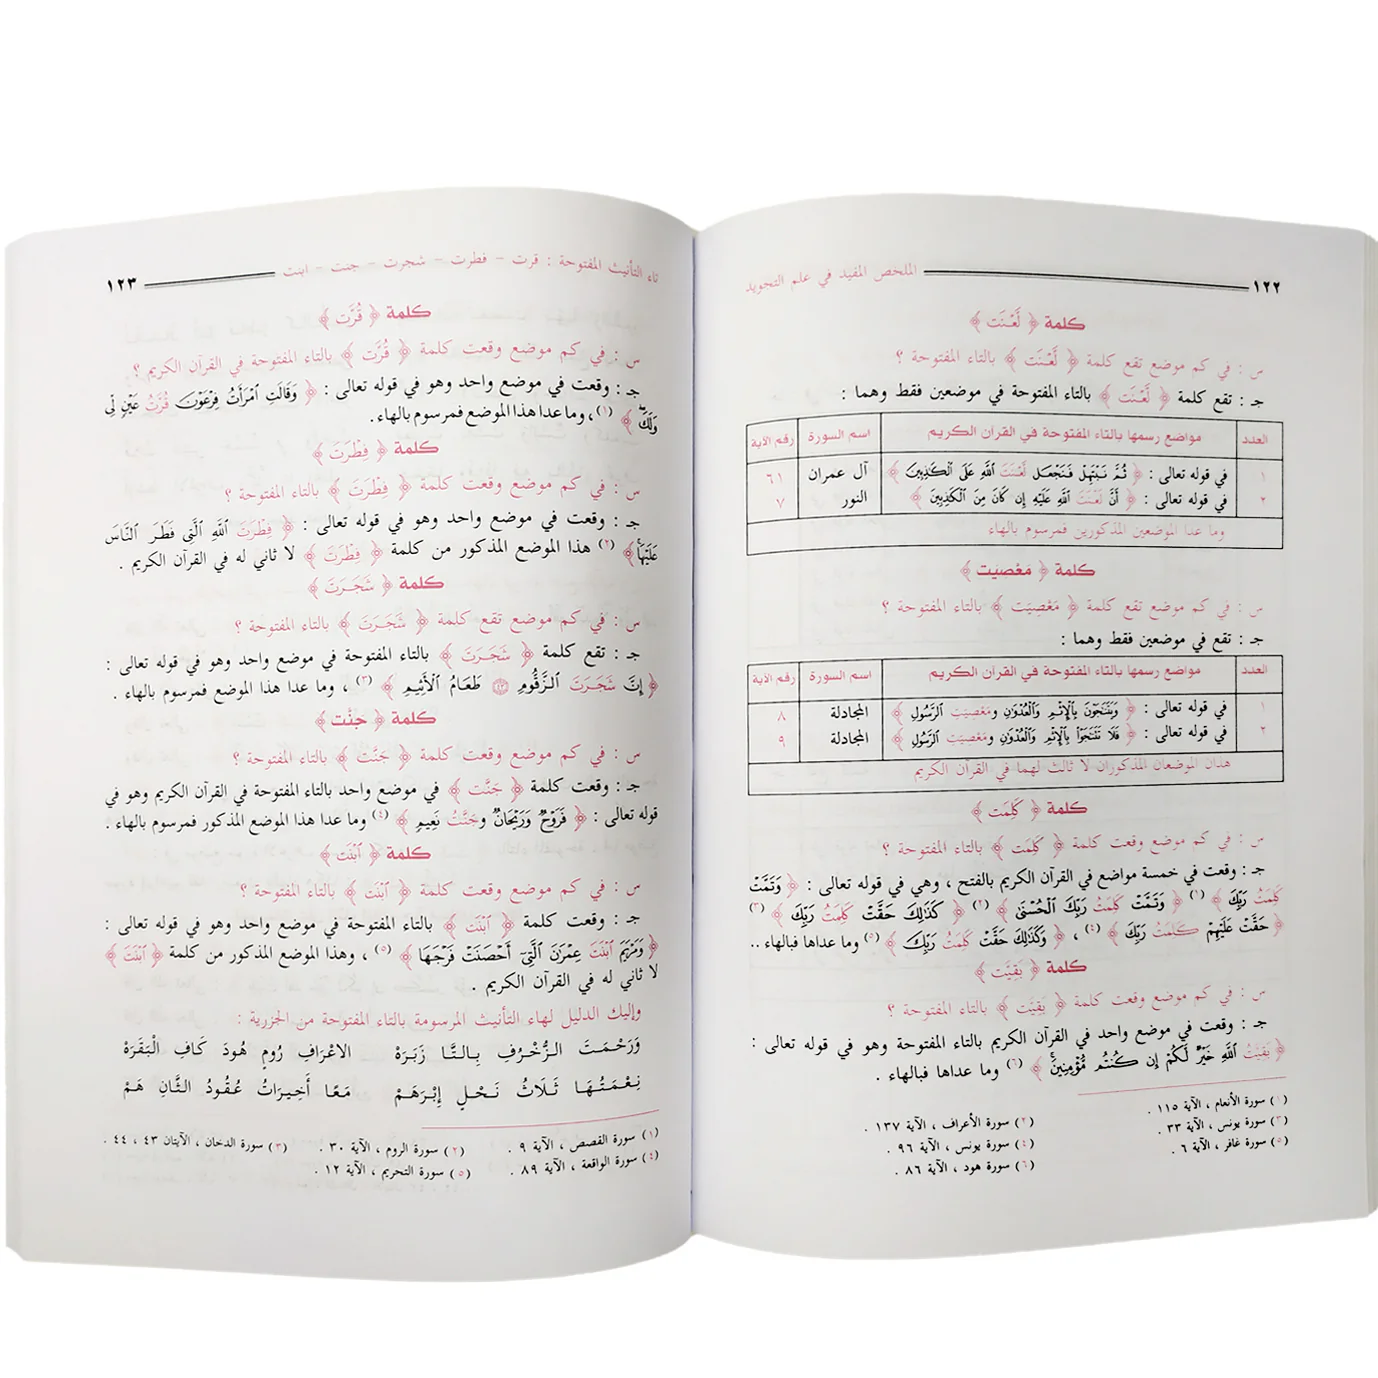 الملخص المفيد في علم التجويد ١٢٢
كلمة ﴿ لَّعْنَتَ ﴾
س : في كم موضع تقع كلمة ﴿ لَّعْنَتَ ﴾ بالتاء المفتوحة ؟
جـ : تقع كلمة ﴿ لَّعْنَتَ ﴾ بالتاء المفتوحة في موضعين فقط وهما :
العدد مواضع رسمها بالتاء المفتوحة في القرآن الكريم اسم السورة رقم الآية
١ في قوله تعالى : ﴿ ثُمَّ نَبْتَهِلْ فَنَجْعَل لَّعْنَتَ اللَّهِ عَلَى الْكَاذِبِينَ ﴾ آل عمران ٦١
٢ في قوله تعالى : ﴿ أَنَّ لَعْنَتَ اللَّهِ عَلَيْهِ إِن كَانَ مِنَ الْكَاذِبِينَ ﴾ النور ٧
وما عدا الموضعين المذكورين فمرسوم بالهاء
كلمة ﴿ مَعْصِيَت ﴾
س : في كم موضع تقع كلمة ﴿ مَعْصِيَت ﴾ بالتاء المفتوحة ؟
جـ : تقع في موضعين فقط وهما :
العدد مواضع رسمها بالتاء المفتوحة في القرآن الكريم اسم السورة رقم الآية
١ في قوله تعالى : ﴿ وَيَتَنَاجَوْنَ بِالْإِثْمِ وَالْعُدْوَانِ وَمَعْصِيَتِ الرَّسُولِ ﴾ المجادلة ٨
٢ في قوله تعالى : ﴿ فَلَا تَتَنَاجَوْا بِالْإِثْمِ وَالْعُدْوَانِ وَمَعْصِيَتِ الرَّسُولِ ﴾ المجادلة ٩
هذان الموضعان المذكوران لا ثالث لهما في القرآن الكريم
كلمة ﴿ كَلِمَت ﴾
س : في كم موضع وقعت كلمة ﴿ كَلِمَت ﴾ بالتاء المفتوحة ؟
جـ : وقعت في خمسة مواضع في القرآن الكريم بالفتح ، وهي في قوله تعالى : ﴿ وَتَمَّتْ
كَلِمَتُ رَبِّكَ ﴾ (١) ﴿ وَتَمَّتْ كَلِمَتُ رَبِّكَ الْحُسْنَىٰ ﴾ (٢) ﴿ كَذَٰلِكَ حَقَّتْ كَلِمَتُ رَبِّكَ ﴾ (٣)
﴿ حَقَّتْ عَلَيْهِمْ كَلِمَتُ رَبِّكَ ﴾ (٤) ، ﴿ وَكَذَٰلِكَ حَقَّتْ كَلِمَتُ رَبِّكَ ﴾ (٥) وما عداها فبالهاء ..
كلمة ﴿ بَقِيَّت ﴾
س : في كم موضع وقعت كلمة ﴿ بَقِيَّت ﴾ بالتاء المفتوحة ؟
جـ : وقعت في موضع واحد في القرآن الكريم بالتاء المفتوحة وهو في قوله تعالى :
﴿ بَقِيَّتُ اللَّهِ خَيْرٌ لَّكُمْ إِن كُنتُم مُّؤْمِنِينَ ﴾ (٦) وما عداها فبالهاء .
(١) سورة الأنعام ، الآية ١١٥ . (٢) سورة الأعراف ، الآية ١٣٧ .
(٣) سورة يونس ، الآية ٣٣ . (٤) سورة يونس ، الآية ٩٦ .
(٥) سورة غافر ، الآية ٦ . (٦) سورة هود ، الآية ٨٦ .
تاء التأنيث المفتوحة : قرت – فطرت – شجرت – جنت – ابنت ١٢٣
كلمة ﴿ قُرَّت ﴾
س : في كم موضع وقعت كلمة ﴿ قُرَّت ﴾ بالتاء المفتوحة في القرآن الكريم ؟
جـ : وقعت في موضع واحد وهو في قوله تعالى : ﴿ وَقَالَتِ امْرَأَتُ فِرْعَوْنَ قُرَّتُ عَيْنٍ لِّي
وَلَكَ ﴾ (١) ، وما عدا هذا الموضع فمرسوم بالهاء.
كلمة ﴿ فِطْرَتَ ﴾
س : في كم موضع وقعت كلمة ﴿ فِطْرَتَ ﴾ بالتاء المفتوحة ؟
جـ : وقعت في موضع واحد وهو في قوله تعالى : ﴿ فِطْرَتَ اللَّهِ الَّتِي فَطَرَ النَّاسَ
عَلَيْهَا ﴾ (٢) هذا الموضع المذكور من كلمة ﴿ فِطْرَتَ ﴾ لا ثاني له في القرآن الكريم .
كلمة ﴿ شَجَرَتَ ﴾
س : في كم موضع تقع كلمة ﴿ شَجَرَتَ ﴾ بالتاء المفتوحة ؟
جـ : تقع كلمة ﴿ شَجَرَتَ ﴾ بالتاء المفتوحة في موضع واحد وهو في قوله تعالى :
﴿ إِنَّ شَجَرَتَ الزَّقُّومِ ٤٣ طَعَامُ الْأَثِيمِ ﴾ (٣) ، وما عدا هذا الموضع فمرسوم بالهاء .
كلمة ﴿ جَنَّت ﴾
س : في كم موضع وقعت كلمة ﴿ جَنَّت ﴾ بالتاء المفتوحة ؟
جـ : وقعت كلمة ﴿ جَنَّت ﴾ في موضع واحد بالتاء المفتوحة في القرآن الكريم وهو في
قوله تعالى : ﴿ فَرَوْحٌ وَرَيْحَانٌ وَجَنَّتُ نَعِيمٍ ﴾ (٤) وما عدا هذا الموضع المذكور فمرسوم بالهاء .
كلمة ﴿ ابْنَتَ ﴾
س : في كم موضع وقعت كلمة ﴿ ابْنَتَ ﴾ بالتاء المفتوحة ؟
جـ : وقعت كلمة ﴿ ابْنَتَ ﴾ بالتاء المفتوحة في موضع واحد وهو في قوله تعالى :
﴿ وَمَرْيَمَ ابْنَتَ عِمْرَانَ الَّتِي أَحْصَنَتْ فَرْجَهَا ﴾ (٥) ، وهذا الموضع المذكور من كلمة ﴿ ابْنَتَ ﴾
لا ثاني له في القرآن الكريم .
وإليك الدليل لهاء التأنيث المرسومة بالتاء المفتوحة من الجزرية :
وَرَحْمَتَ الزُّخْرُفِ بِالتَّا زَبَرَهْ الاعْرَافِ رُومٍ هُودَ كَافِ الْبَقَرَهْ
نِعْمَتُهَا ثَلَاثُ نَحْلٍ إِبْرَهَمْ مَعًا أَخِيرَاتُ عُقُودُ الثَّانِ هَمْ
(١) سورة القصص ، الآية ٩ . (٢) سورة الروم ، الآية ٣٠ . (٣) سورة الدخان ، الآيتان ٤٣ ، ٤٤ .
(٤) سورة الواقعة ، الآية ٨٩ . (٥) سورة التحريم ، الآية ١٢ .